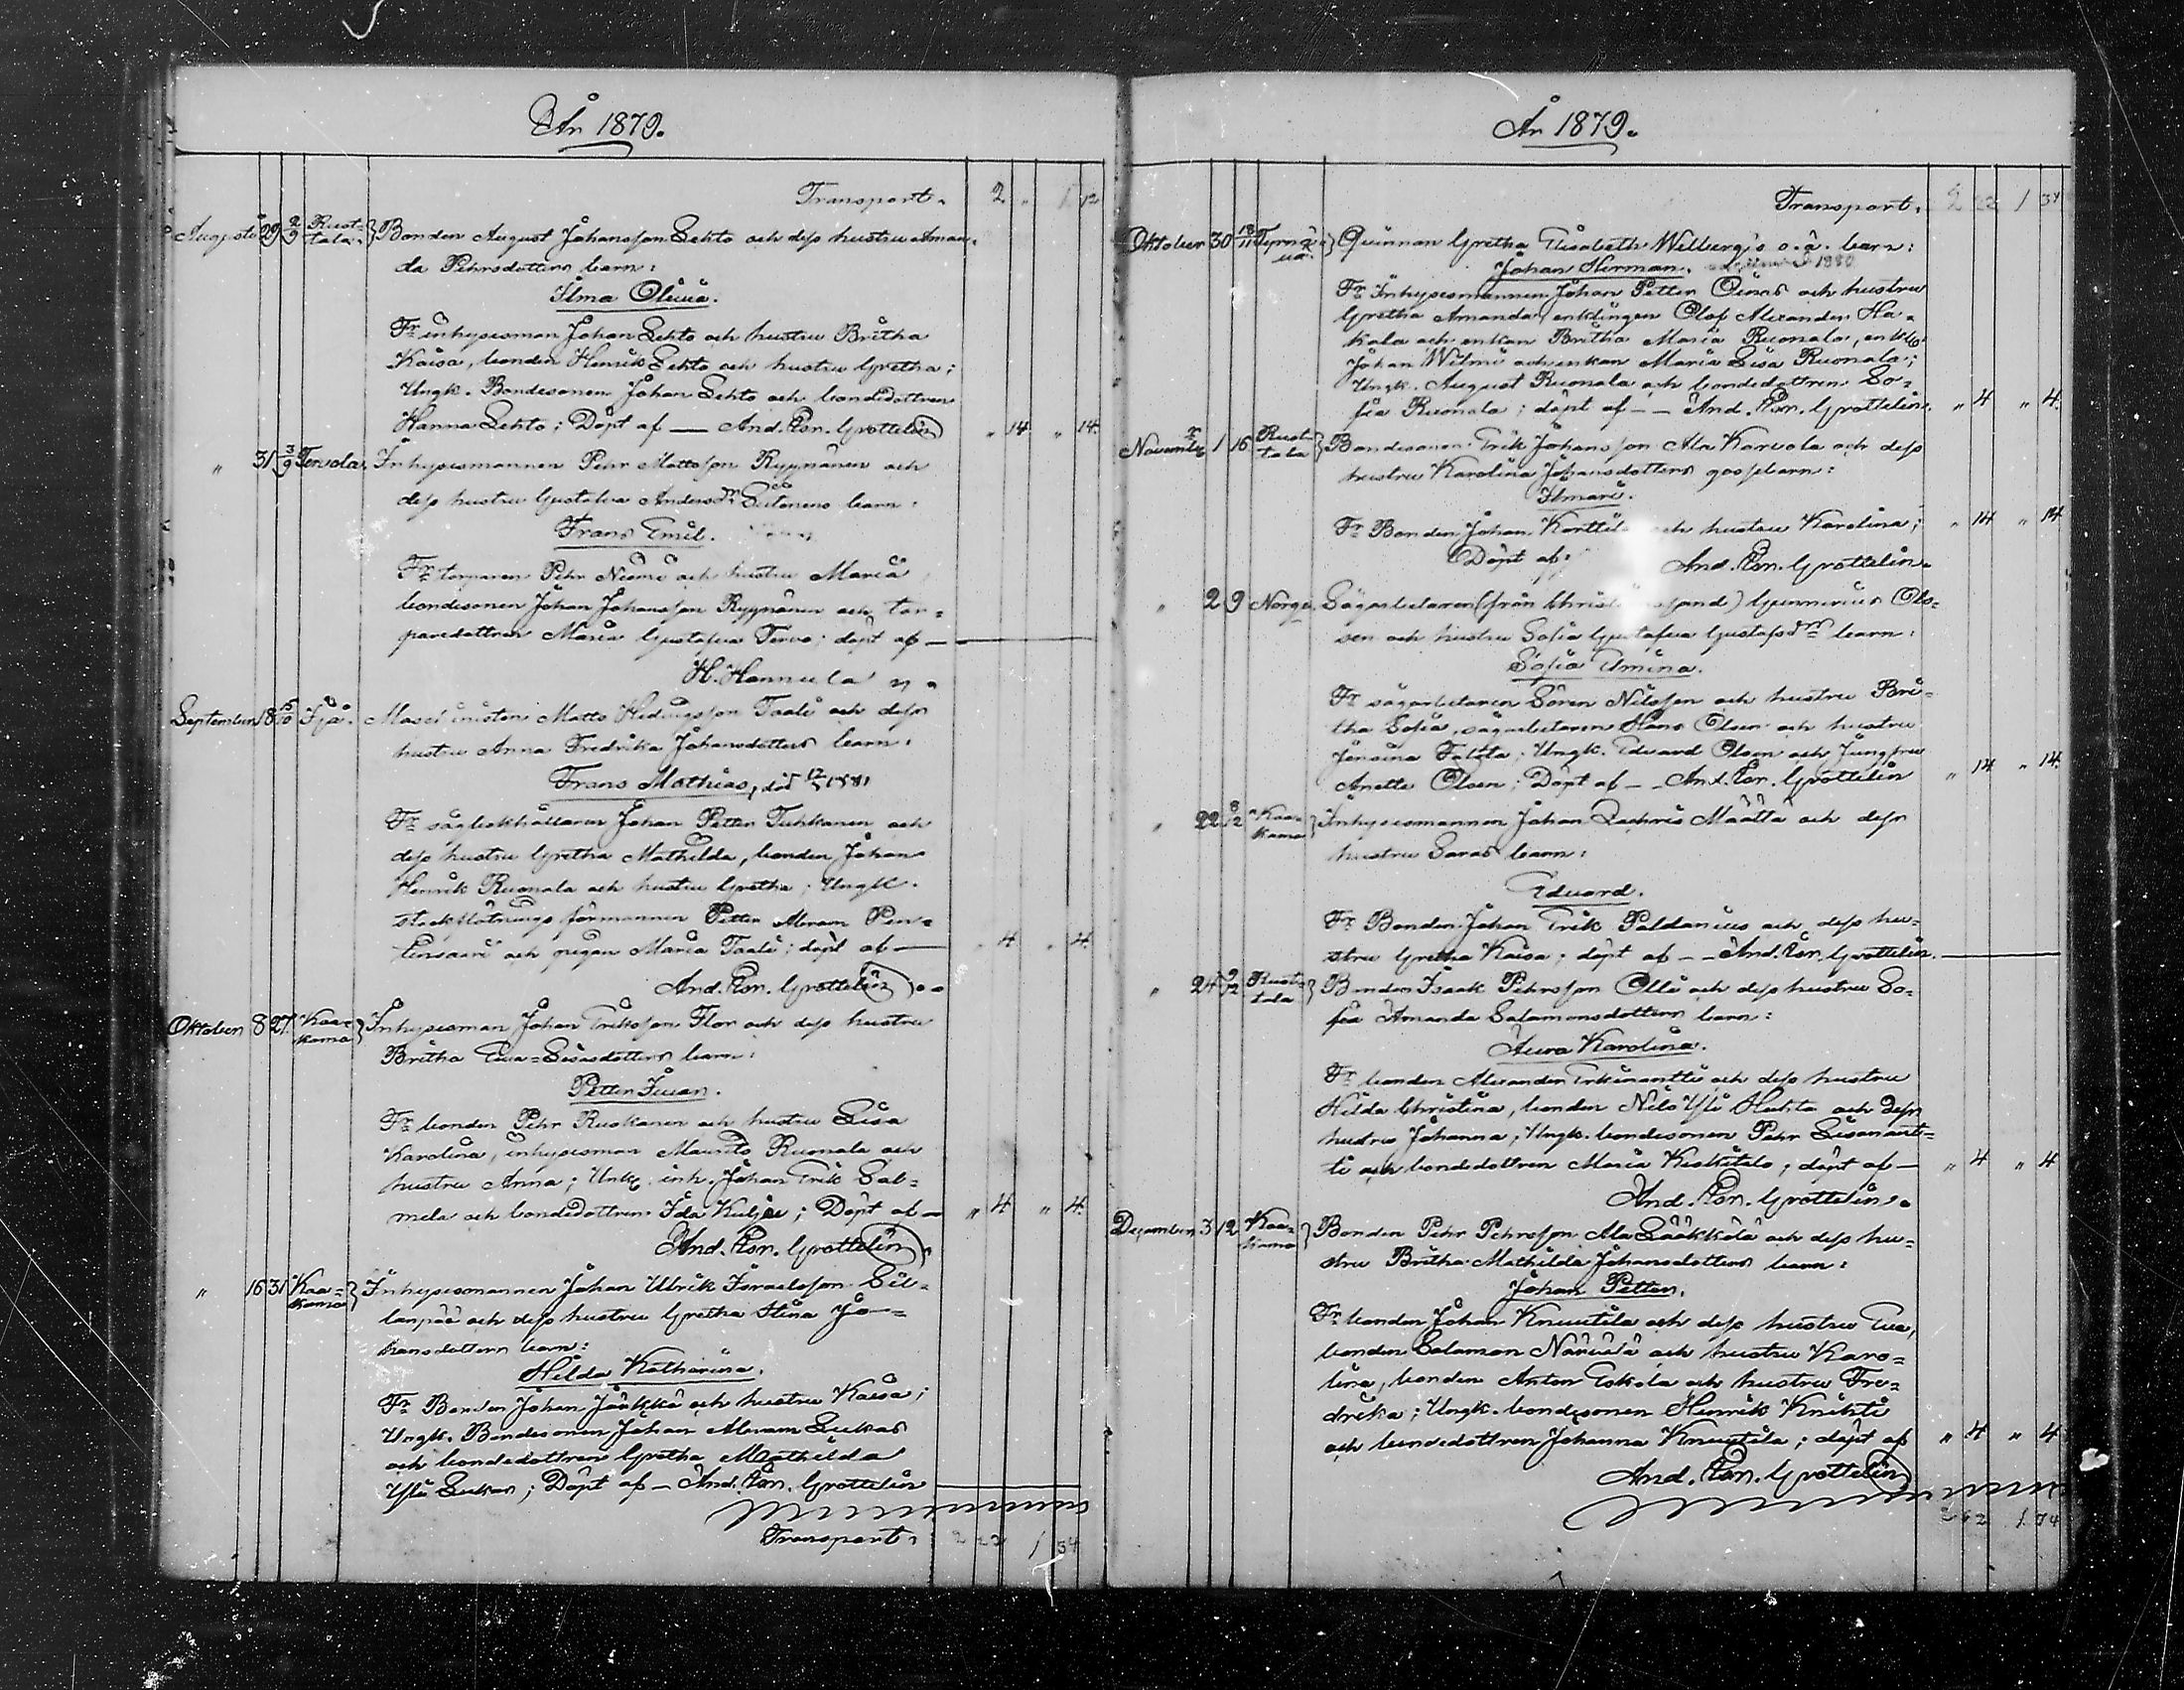 År 1879.
Transport. 2 " 1 12
Augusti 29 2/9 Ruot-
tala. } Bonden August Johansson Lehto och dess hustru Aman-
da Pehrsdotters barn:
Ilma Olivia.
Fr. inhysesman Johan Lehto och hustru Britha
Kaisa, bonden Henrik Lehto och hustru Gretha;
Ungk. Bondesonen Johan Lehto och bondedottren
Hanna Lehto; Döpt af — And. Kon. Grottelin " 14 " 14.
" 31 3/9 Tervola, Inhysesmannen Pehr Mattsson Ryynänen och
dess hustru Gustafva Andersdr barn:
Frans Emil.
Fr. torparen Pehr Niemi och hustru Maria,
bondesonen Johan Johansson Ryynänen och tor-
paredottren Maria Gustafva Tervo; döpt af —
H. Hannula
September 18 5/10 Ijo. Matts Hedvigsson Taali och dess
hustru Anna Fredrika Johansdotters barn:
Frans Mathias, död 1881
Fr. Johan Petter Tuhkanen och
dess hustru Gretha Mathilda, bonden Johan
Henrik Ruonala och hustru Gretha; Ungk.
stockflötningsförmannen Petter Abram Pen-
tinsaari och pigan Maria Taali; döpt af — " 4 " 4.
And. Kon. Grottelin
Oktober 8 27. Kaa-
kamo } Inhysesman Johan Eriksson Flor och dess hustru
Britha Eva-Lisasdotters barn:
Petter Iivari.
Fr. bonden Pehr Ruskanen och hustru Lisa
Karolina, inhysesman Maunits Ruonala och
hustru Anna; Unk. inh. Johan Erik Sal-
mela och bondedottren Ida Kulju; Döpt af — " 4 " 4.
And. Kon. Grottelin.
" 16 31 Kaa-
kamo } Inhysesmannen Johan Ulrik Israelsson Sil-
lanpää och dess hustru Gretha Stina Jo-
hansdotters barn:
Hilda Katharina.
Fr. Bonden Johan Jääkkä och hustru Kaisa;
Ungk. Bondesonen Johan Abram Lukas
och bondedottren Gretha Mathilda
Yli Lukas; Döpt af — And. Kon. Grottelin
Transport. 2 22 1 34
År 1879.
Transport. 2 22 1 34
Oktober 30 18/11 } Qvinnan Gretha Elisabeth Wilbergs o. ä. barn:
Johan Herman. 1880
Fr. Inhysesmannen Johan Petter Oinas och hustru
Gretha Amanda, enklingen Olof Alexander Ha-
kala och enkan Britha Maria Ruonala, enkl.
Johan Wilmi och enkan Maria Lisa Ruonala;
Ungk. August Ruonala och bondedottren So-
fia Ruonala; döpt af — And. Kon. Grottelin. " 4 " 4.
November 1 16 Ruot-
tala } Bondesonen Erik Johansson Ala Karvola och dess
hustru Karolina Johansdotters gossebarn:
Ilmari.
Fr. Bonden Johan och hustru Karolina; " 14 " 14
Döpt af: And. Kon. Grottelin.
" 2 9 Norge, Sågarbetaren (från ) Ols-
sen och hustru Sofia Gustafva Gustafsdrs barn:
Sofia Emina.
Fr. sågarbetaren Sören Nilsson och hustru Bri-
tha Sofia, sågarbetaren Hans Olsen och hustru
Jensina; Ungk. Eduard Olsen och Jungfru
Anette Olsen; Döpt af — And. Kon. Grottelin " 14 " 14.
" 22 8/12 Kaa-
kamo } Inhysesmannen Johan Zachris Määttä och dess
hustru Saras barn:
Eduard.
Fr. Bonden Johan Erik Paldanius och dess hu-
stru Gretha Kaisa; döpt af — And. Kon. Grottelin.
" 24 9/12 Ruot-
tala } Bonden Isaak Pehrsson Olli och dess hustru So-
fia Amanda Salomonsdotters barn:
Aura Karolina.
Fr. bonden Alexander Erkinantti och dess hustru
Hilda Christina, bonden Nils Yli Huhta och dess
hustru Johanna; Ungk. bondesonen Pehr Lisanant-
ti och bondedottren Maria Keskitalo; döpt af — " 4 " 4
And. Kon. Grottelin.
December 3 12 Kaa-
kamo } Bonden Pehr Pehrsson Ala Lääkkölä och dess hu-
stru Britha Mathilda Johansdotters barn:
Johan Petter.
Fr. bonden Johan Knuutila och dess hustru Eva,
bonden Salomon och hustru Karo-
lina, bonden Anton Eskola och hustru Fre-
drika; Ungk. bondesonen Henrik Knihti
och bondedottren Johanna Knuutila; döpt af " 4 " 4
And. Kon. Grottelin
2 62 1 74